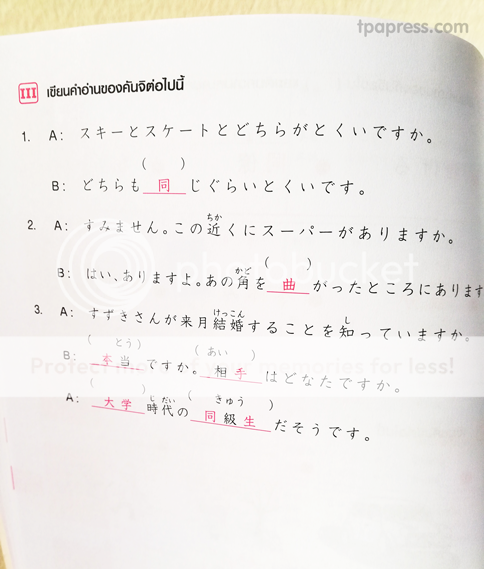 tpapress.com
III เขียนคำอ่านของคันจิต่อไปนี้
1. A: スキーとスケートとどちらがとくいですか。
( )
B: どちらも同じぐらいとくいです。
ちか
2. A: すみません。この近くにスーパーがありますか。
かど ( )
B: はい、ありますよ。あの角を曲がったところにあります
けっこん し
3. A: すずきさんが来月結婚することを知っていますか。
( とう) ( あい )
B: 本当ですか。相手はどなたですか。
( ) じだい ( きゅう )
A: 大学時代の同級生だそうです。
Protect more of your memories for less!
photobucket